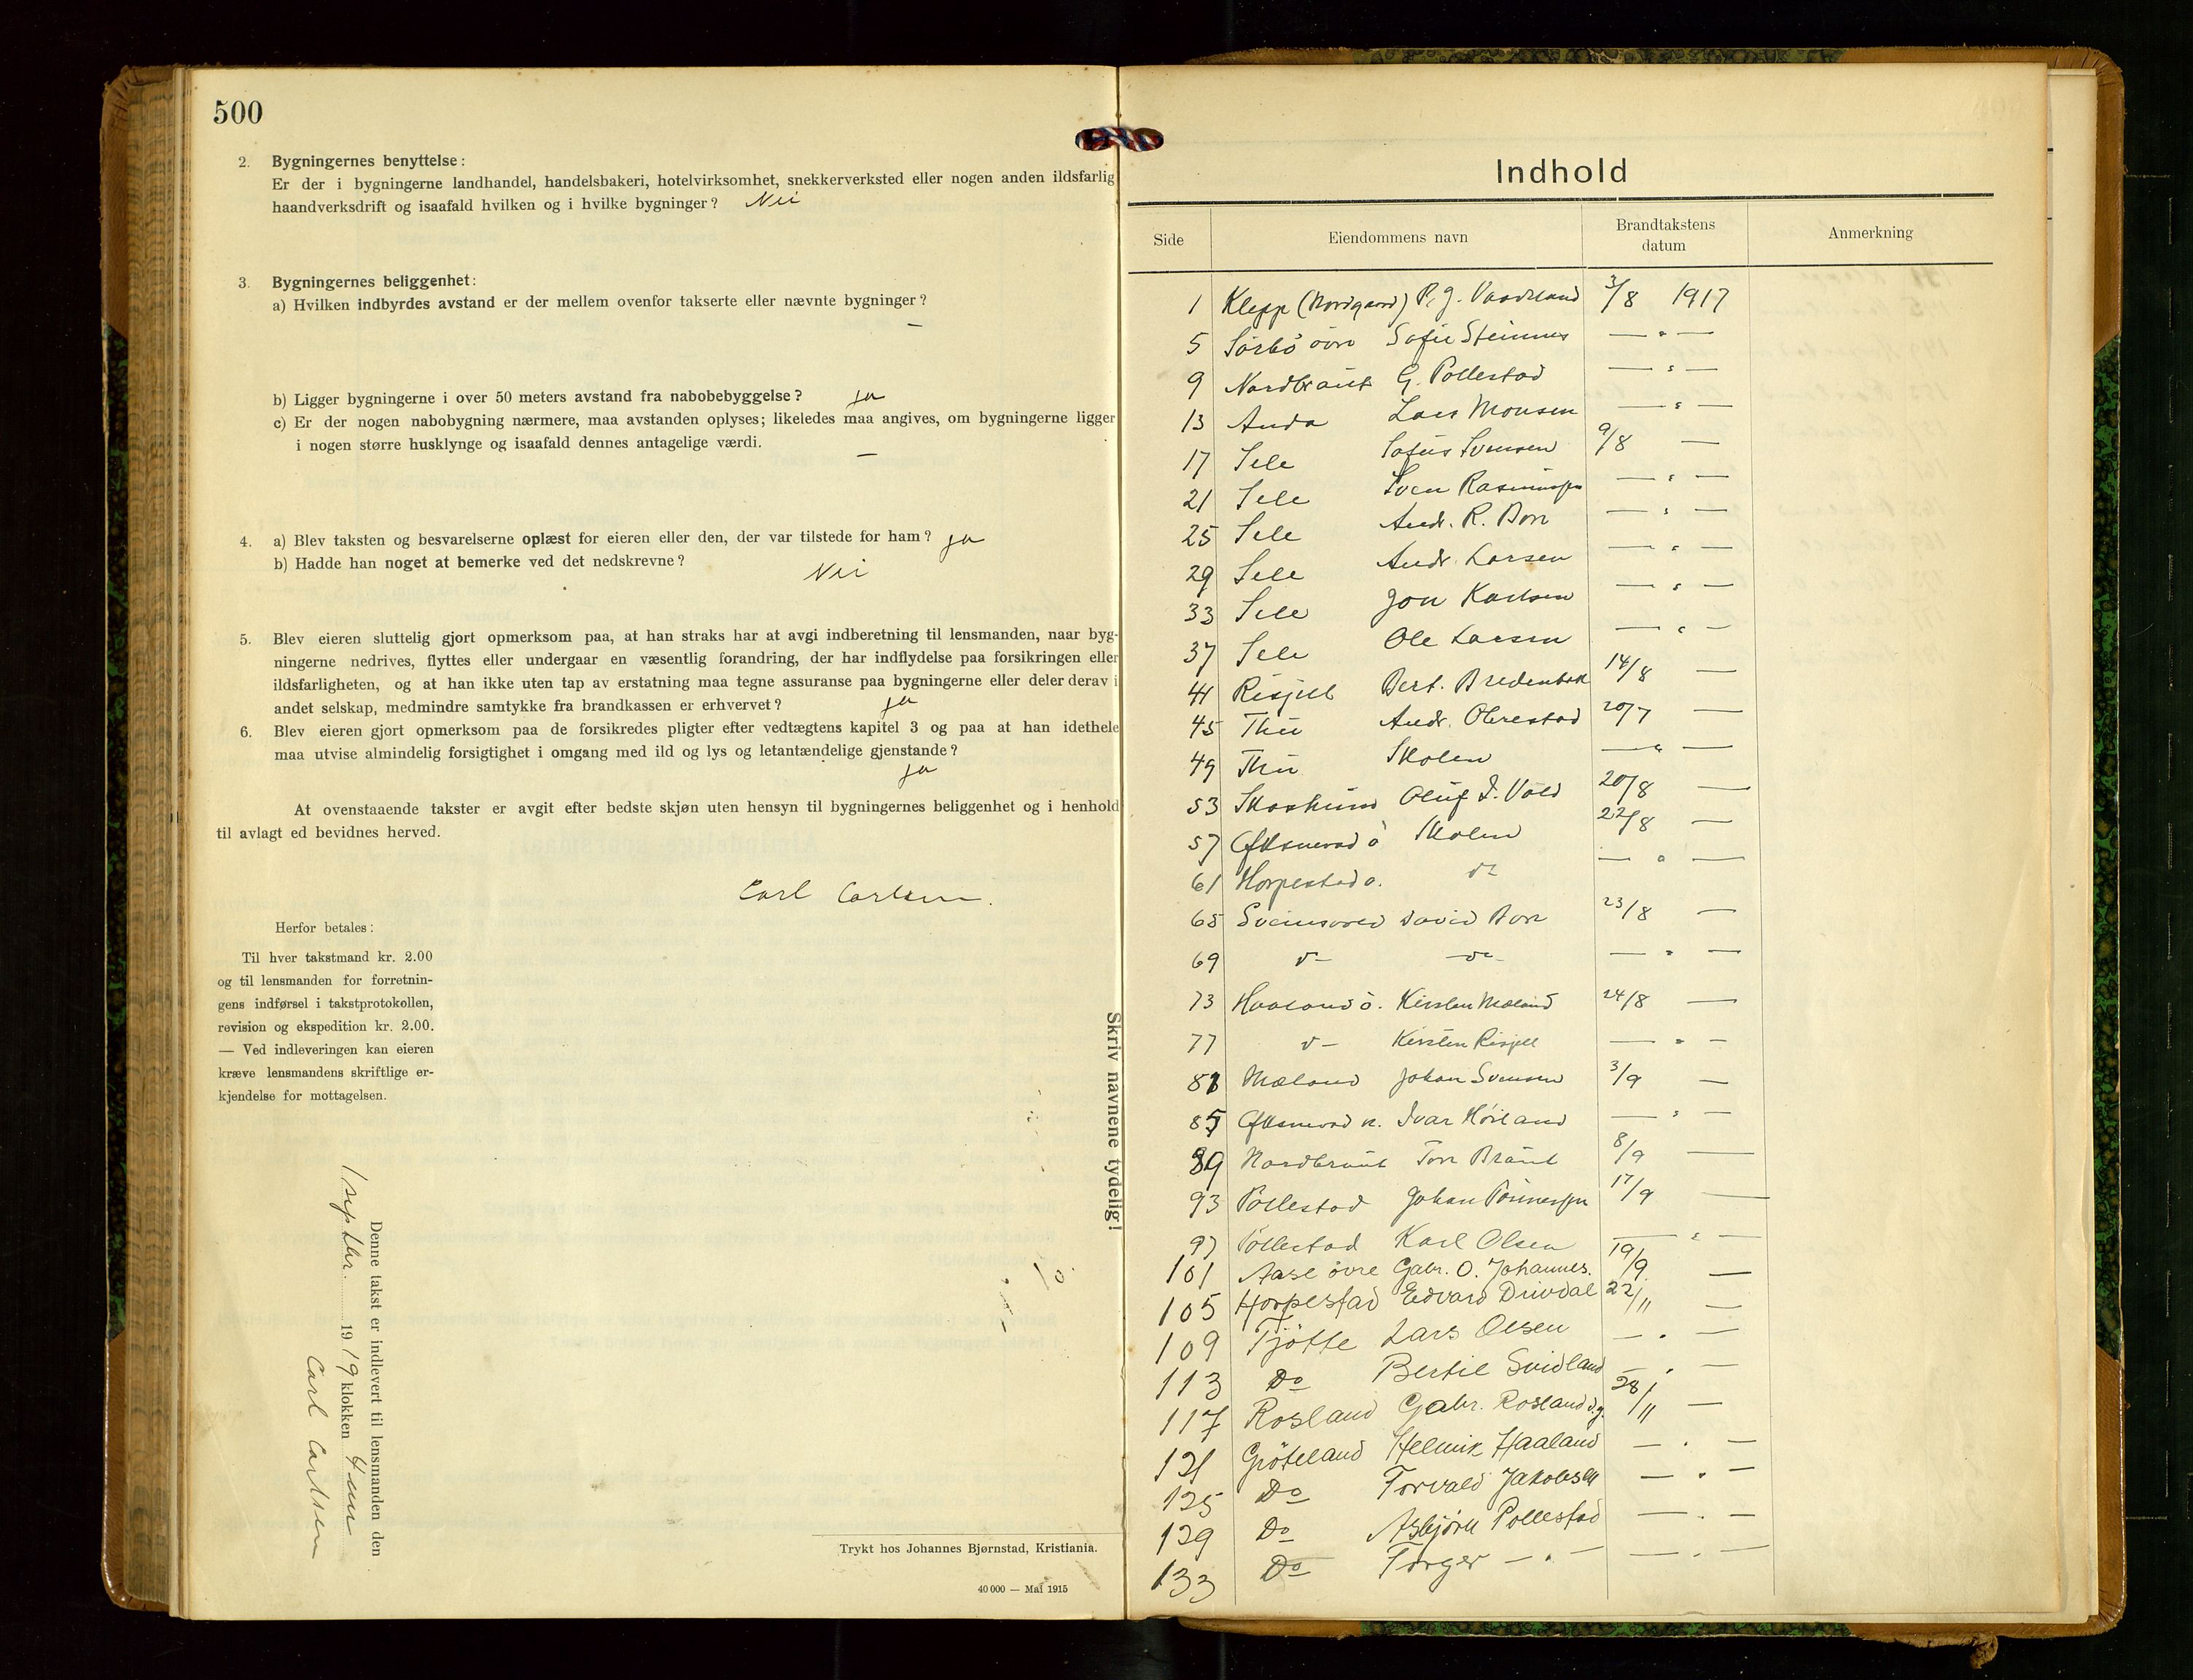 500
2. Bygningernes benyttelse:
Er der i bygningerne landhandel, handelsbakeri, hotelvirksomhet, snekkerverksted eller nogen anden ildsfarlig
haandverksdrift og isaafald hvilken og i hvilke bygninger? Nei
3. Bygningernes beliggenhet:
a) Hvilken indbyrdes avstand er der mellem ovenfor takserte eller nævnte bygninger?
—
b) Ligger bygningerne i over 50 meters avstand fra nabobebyggelse? ja
c) Er der nogen nabobygning nærmere, maa avstanden oplyses; likeledes maa angives, om bygningerne ligger
i nogen større husklynge og isaafald dennes antagelige værdi.
—
4. a) Blev taksten og besvarelserne oplæst for eieren eller den, der var tilstede for ham? ja
b) Hadde han noget at bemerke ved det nedskrevne? Nei
5. Blev eieren sluttelig gjort opmerksom paa, at han straks har at avgi indberetning til lensmanden, naar byg-
ningerne nedrives, flyttes eller undergaar en væsentlig forandring, der har indflydelse paa forsikringen eller
ildsfarligheten, og at han ikke uten tap av erstatning maa tegne assuranse paa bygningerne eller deler derav i
andet selskap, medmindre samtykke fra brandkassen er erhvervet? ja
6. Blev eieren gjort opmerksom paa de forsikredes pligter efter vedtægtens kapitel 3 og paa at han idethele
maa utvise almindelig forsigtighet i omgang med ild og lys og letantændelige gjenstande?
ja
At ovenstaaende takster er avgit efter bedste skjøn uten hensyn til bygningernes beliggenhet og i henhold
til avlagt ed bevidnes herved.
Carl Carlsen.
Herfor betales:
Til hver takstmand kr. 2.00
og til lensmanden for forretnin-
gens indførsel i takstprotokollen,
revision og ekspedition kr. 2.00.
— Ved indleveringen kan eieren
kræve lensmandens skriftlige er-
kjendelse for mottagelsen.
Denne takst er indlevert til lensmanden den
1 septbr. 1919 klokken 4 em
Carl Carlsen
Skriv navnene tydelig!
Trykt hos Johannes Bjørnstad, Kristiania.
40 000 — Mai 1915
Indhold
Side Eiendommens navn Brandtakstens datum Anmerkning
1 Klepp (Nordgaard) P. J. Vaadland 3/8 1917
5 Sörbö övre Sofie Steinnes — " —
9 Nordbraut G. Pollestad — " —
13 Anda Lars Monsen — " —
17 Sele Sofus Svensen 9/8 —
21 Sele Sven Rasmussen — " —
25 Sele Andr. R. Bore — " —
29 Sele Andr. Larsen — " —
33 Sele Jon Karlsen — " —
37 Sele Ole Larsen — " —
41 Risjell Bert. Bredenbek 14/8 —
45 Thu Andr. Obrestad 20/7 —
49 Thu Skolen — " —
53 Oluf I. Vold 20/8 —
57 ö Skolen 22/8 —
61 Horpestad ö. do — " —
65 Sveinsvold David Bore 23/8 —
69 do do — " —
73 Haaland ö. Kirsten Mæland 24/8 —
77 do Kirsten Risjell — " —
81 Mæland Johan Svensen 3/9 —
85 n. Ivar Höiland — " —
89 Nordbraut Tore Braut 8/9 —
93 Pollestad Johan 17/9 —
97 Pollestad Karl Olsen — " —
101 Aase övre Gabr. O. Johannes. 19/9 —
105 Horpestad Edvard Drivdal 22/11 —
109 Tjötte Lars Olsen — " —
113 Do Bertil Svidland — " —
117 Rosland Gabr. Rosland d.y. 28/11 —
121 Gröteland Helmik Haaland — " —
125 Do Torvald Jakobsen — " —
129 Do Asbjörn Pollestad — " —
133 Do Torger — " — — " —